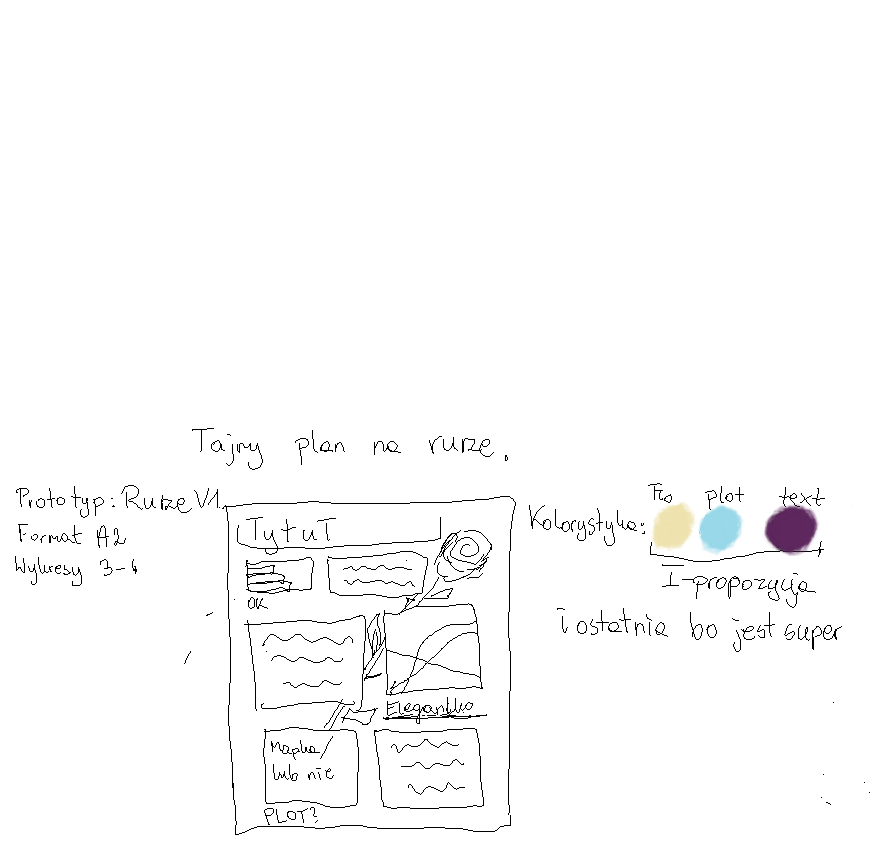 Tajny plan na rurze.
Prototyp: Rurze V1.
Format A2
Wykresy 3-4
Tytuł
OK
Elegantko
Mapka/
lub nie
PLOT?
Kolorystyka:
Tło plot text
I-propozycja
i ostatnia bo jest super